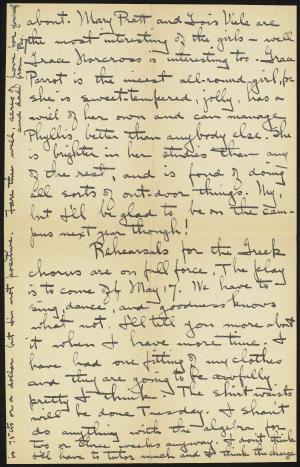 about. Mary Pratt and Lois Viele are
the most interesting of the girls - well
Grace Norcross is interesting too. Grace
Parrot is the nicest all-round girl, for
she is sweet-tempered, jolly, has a
will of her own and can manage
Phyllis better than anybody else. She
is brighter in her studies than any
of the rest, and is fond of doing
all sorts of out-door things. My,
but I'll be glad to be on the cam-
pus next year though!
Rehearsals for the Greek
chorus are on full force. The play
is to come off May 17. We have to
sing, dance, and goodness knows
what not. I'll tell you more about
it when I have more time. I
have had one fitting of my clothes
and they are going to be awfully
pretty I think. The shirt waists
will be done Tuesday. I shan't
do anything with the algebra for
two or three weeks anyway. I don't think
I'll have to tutor much and I think the charge
is 75 cts or a dollar but I'm not positive.